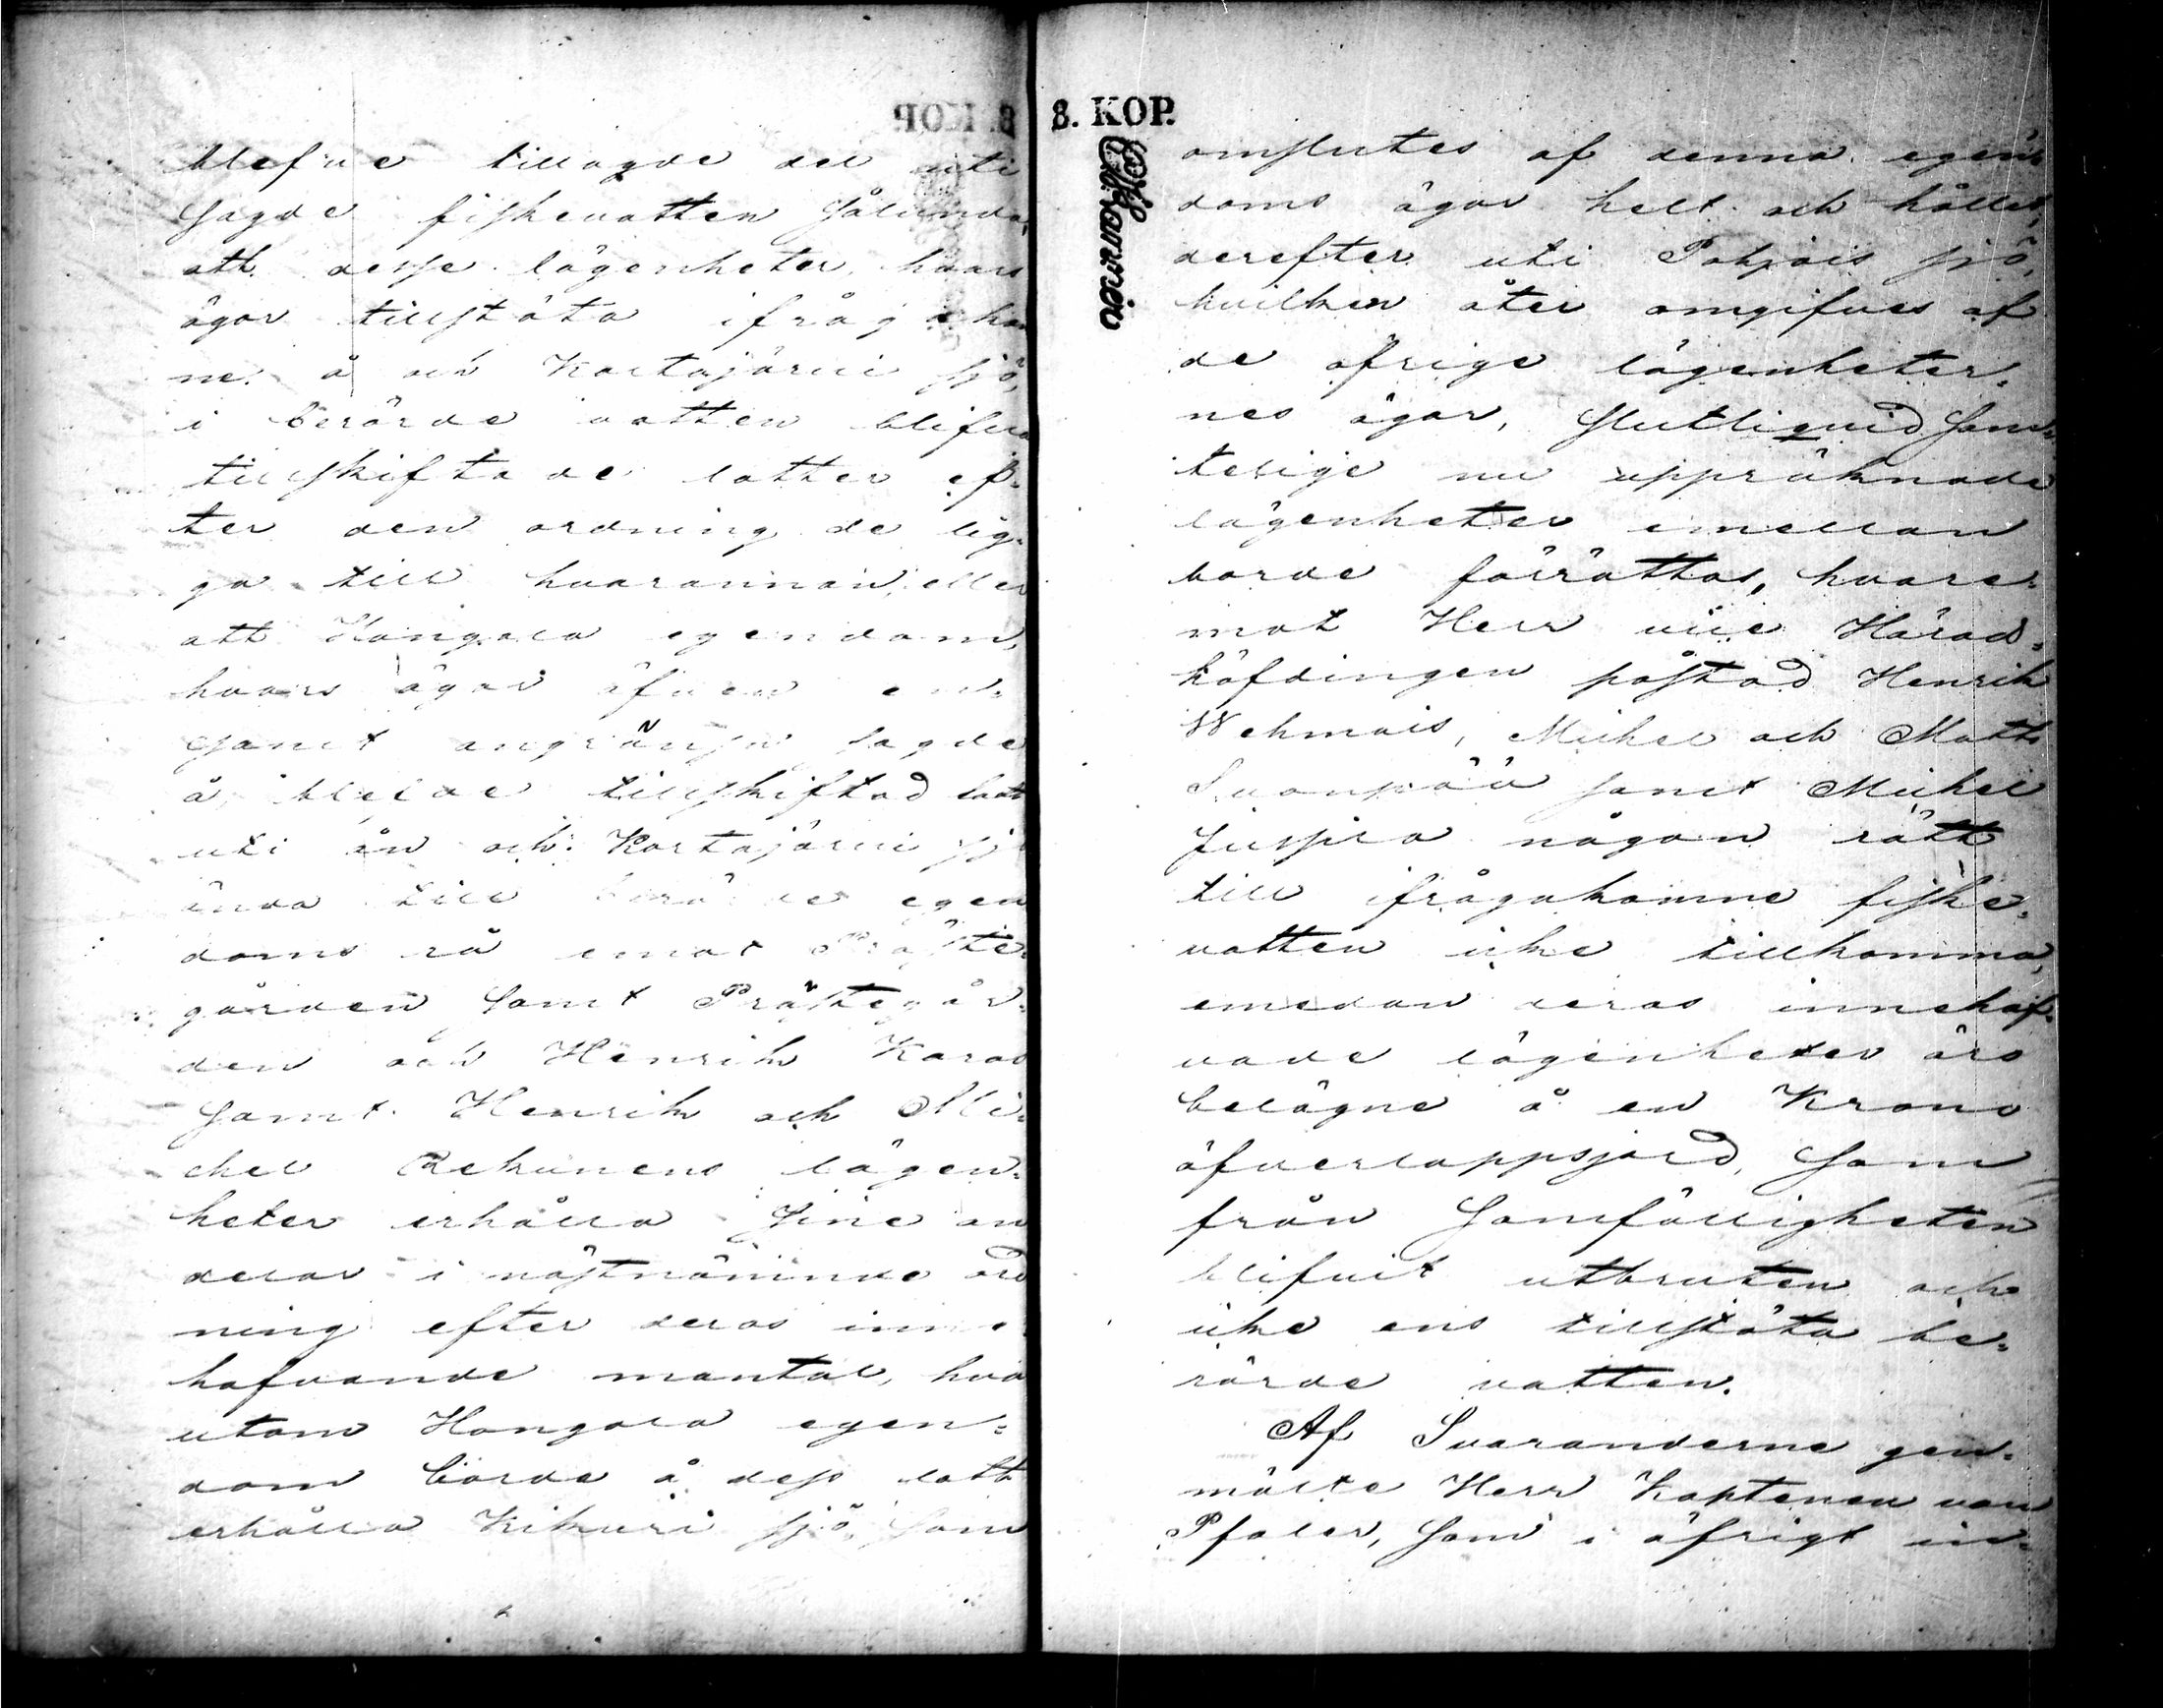 blefve tillagde del uti
sagde fiskevatten sålunda,
att desse lägenheter, hvars
ägor tillstöta ifrågakom
ne å och Kortajärvi sjö,
i berörde vatten blifva
tillskiftade lotter ef-
ter den ordning de lig-
ga till hvarannan, eller
att Hongola egendom,
hvars ägor äfven en-
samt angränsa sagde
å, blefve tillskiftad lott
uti ån och Kortajärvi sjö
ända till berörde egen
doms rå emot Präste
gården samt Prästegår-
den och Henrik Karas
samt Henrik och Mi-
chel Rekunens lägen-
heter erhålla sine an
delar i nästnämnde ord
ning efter deras inne-
hafvande mantal, hvar
utom Hongola egen-
dom borde å dess lott
erhålla Kikuri sjö, som
8. KOP.
omslutes af denna egen-
doms ägor helt och hållet,
derefter uti Pohjois sjö,
hvilken åter omgifves af
de öfrige lägenheter-
nes ägor, slutliqvid sam-
telige nu uppräknade
lägenheter emellan
borde förrättas, hvare-
mot Herr vice Härads-
höfdingen påstod Henrik
Wehmais, Michel och Matts
Suonpää samt Michel
Jussila någon rätt
till ifrågakomne fiske-
vatten icke tillkomma,
emedan deras innehaf-
vade lägenheter äro
belägne å en Krono
öfverloppsjord, som
från samfälligheten
blifvit utbruten och
icke ens tillstöta be-
rörde vatten.
Af Svaranderne gen-
mälte Herr Kaptenen von
Pfaler, som i öfrigt in-